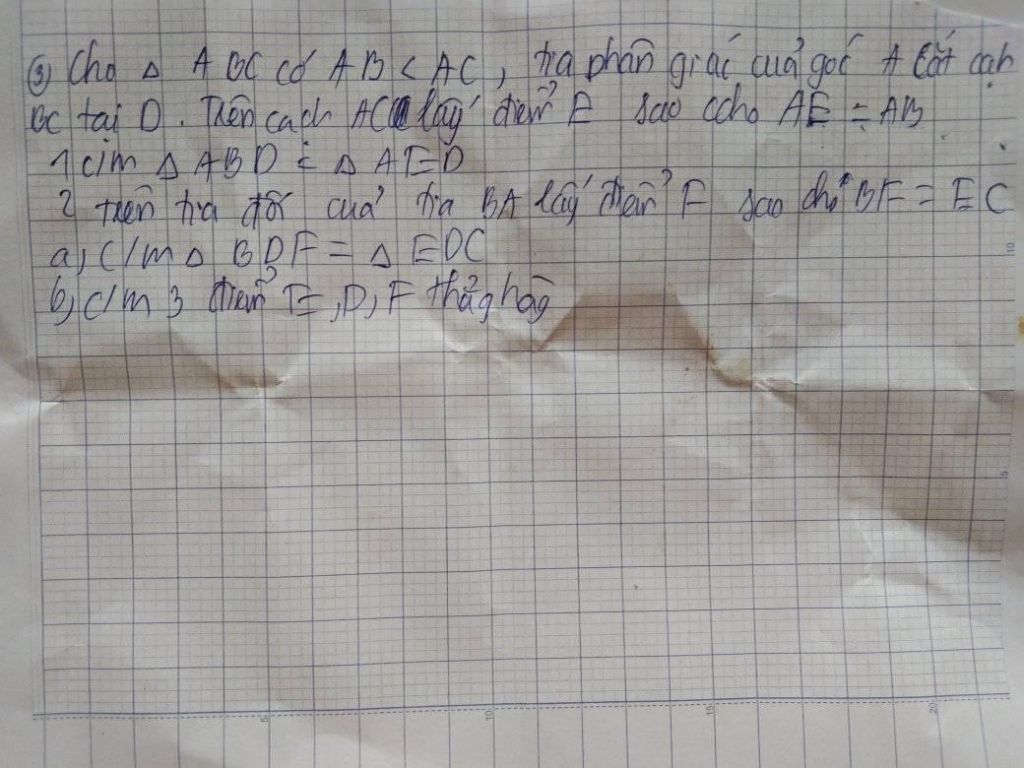 ③ Cho △ ABC có AB < AC, tia phân giác cuả góc A cắt cạh
BC tại D. Trên cạch AC lấy điểm E sao ccho AE = AB
1 c/m △ ABD = △ AED
2 trên tia đối cuả tia BA lấy điểm F sao cho BF = EC
a, C/m △ BDF = △ EDC
b, c/m 3 điểm E, D, F thẳg hàg
10
5
5
10
15
20